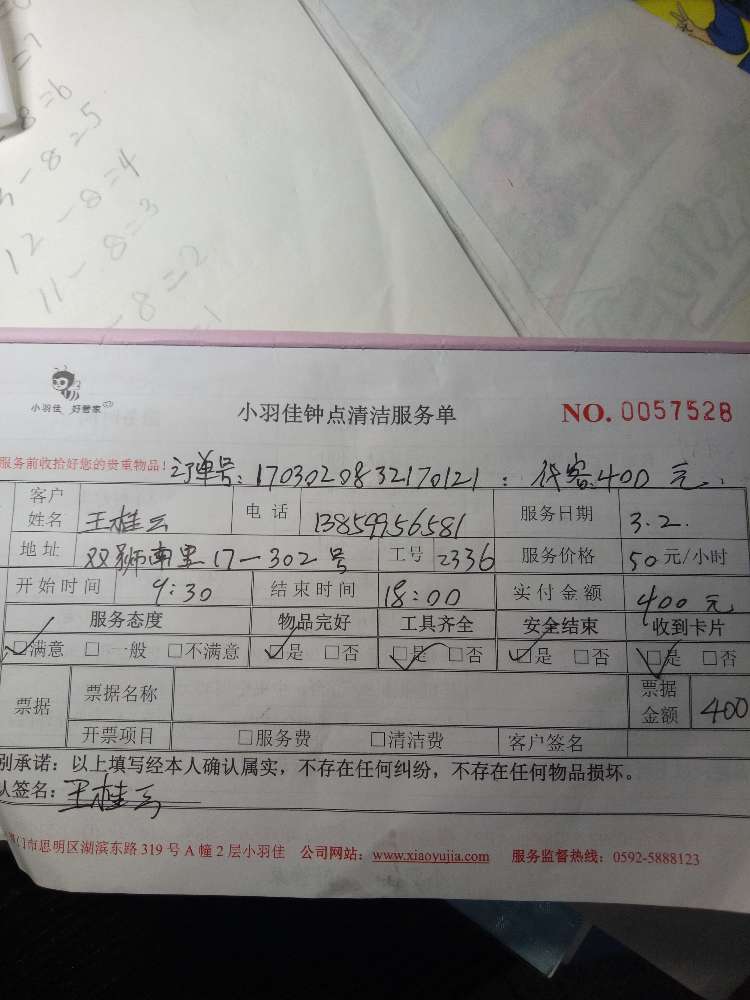 =7
-8=6
3-8=5
12-8=4
11-8=3
-8=2
=1
小羽佳 好管家
小羽佳钟点清洁服务单
NO. 0057528
服务前收拾好您的贵重物品! 订单号: 17030208322170121 : 代客:400 元.
客户姓名 王桂云 电话 13859956581 服务日期 3.2.
地址 双狮南里17-302号 工号 2336 服务价格 50元/小时
开始时间 9:30 结束时间 18:00 实付金额 400元
服务态度 物品完好 工具齐全 安全结束 收到卡片
☑满意 □一般 □不满意 ☑是 □否 ☑是 □否 ☑是 □否 ☑是 □否
票据 票据名称 票据金额 400
开票项目 □服务费 □清洁费 客户签名
别承诺：以上填写经本人确认属实，不存在任何纠纷，不存在任何物品损坏。
认签名: 王桂云
门市思明区湖滨东路 319 号 A 幢 2 层小羽佳 公司网站：www.xiaoyujia.com 服务监督热线：0592-5888123